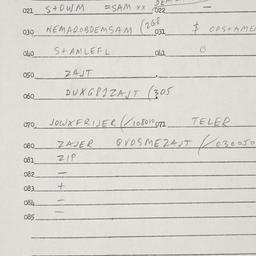 021 S+DWM =SAM xx 022 —
030 NEMAROBDEMSAM (268 031 $ OPS+AME
040 S+AMLEFL 041 O
050 ZAJT
060 DUXGP1ZAJT (305
070 JOWXFRIJER (/10801 071 TELER
080 ZAJER QVOSMEZAJT (/030050
081 ZIP
082 —
083 +
084 —
085